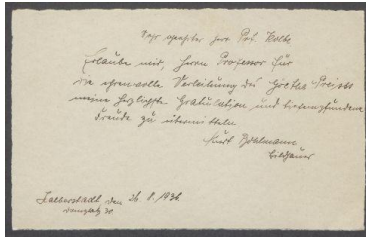 Sehr geehrter Herr Prof. Kolbe
Erlaube mir, Herrn Professor für
die ehrenvolle Verleihung des Goethe-Preises
meine herzlichste Gratulation und tiefempfundene
Freude zu übermitteln
Kurt Bohlmann
Bildhauer
Halberstadt, den 26. 8. 1936
Domplatz 30